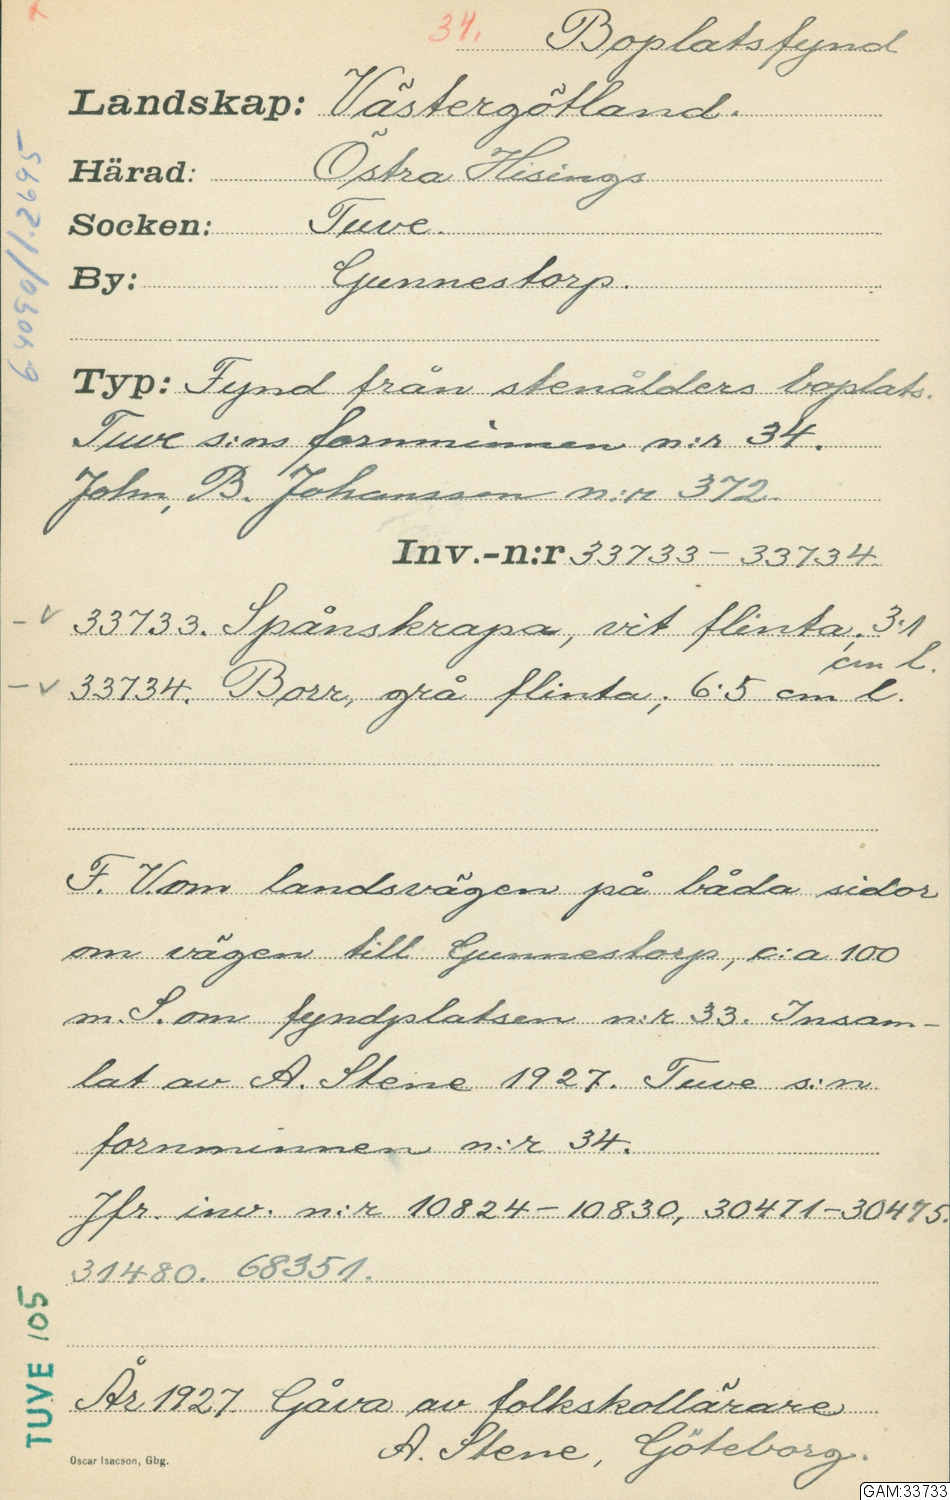 34. Boplatsfynd
Landskap: Västergötland.
Härad: Östra Hisings
Socken: Tuve.
By: Gunnestorp.
Typ: Fynd från stenålders boplats.
Tuve s:ns fornminnen n:r 34.
John, B. Johansson n:r 372.
Inv.-n:r 33733 – 33734.
– v 33733. Spånskrapa, vit flinta; 3·1
cm l.
– v 33734. Borr, grå flinta; 6·5 cm l.
F. V. om landsvägen på båda sidor
om vägen till Gunnestorp, c:a 100
m. S. om fyndplatsen n:r 33. Insam-
lat av A. Stene 1927. Tuve s:n
fornminnen n:r 34.
Jfr. inv. n:r 10824–10830, 30471–30475.
31480. 68351.
År 1927. Gåva av folkskollärare
A. Stene, Göteborg.
Oscar Isacson, Gbg.
TUVE 105
64090/1.2695
GAM:33733